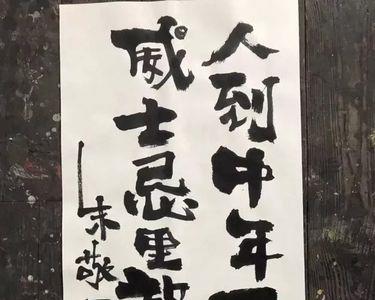 人到中年
威士忌里
朱敬